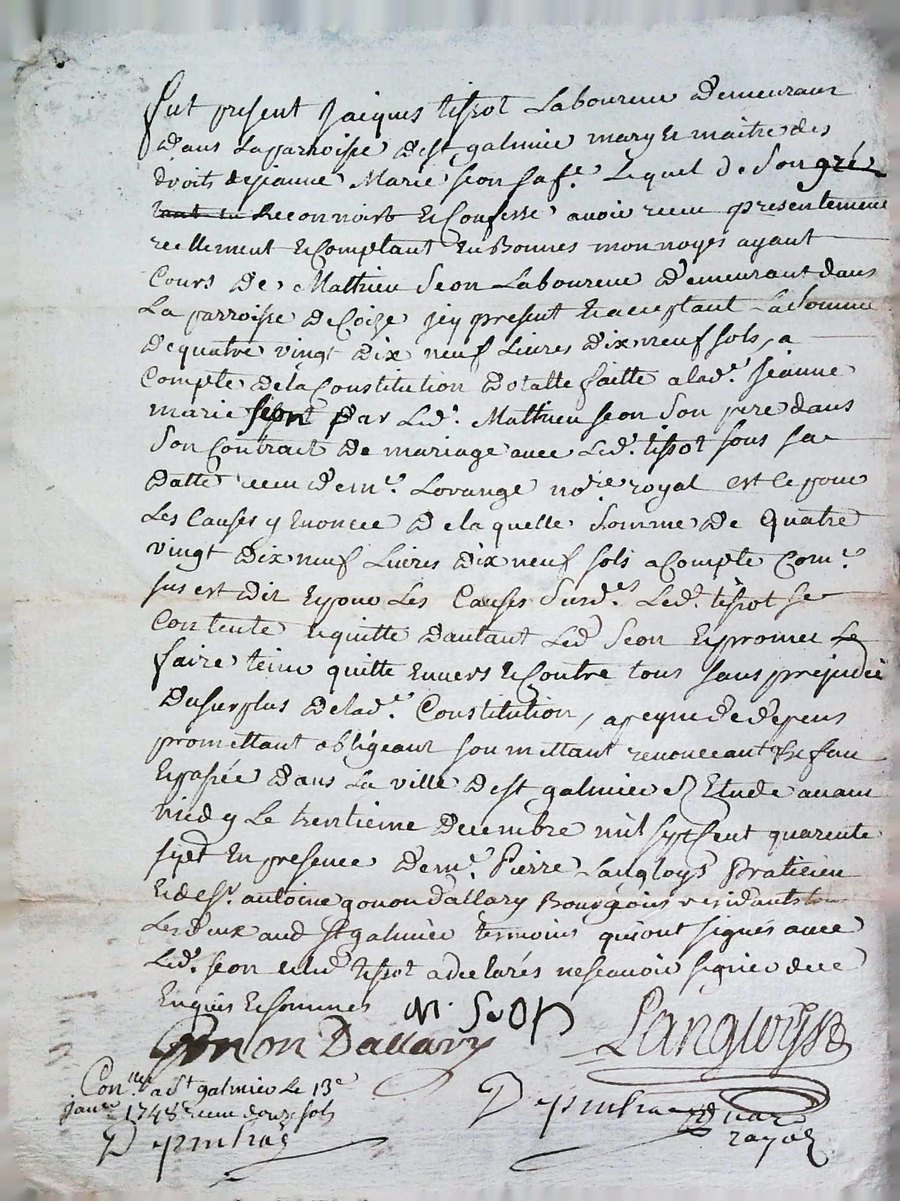 fut present Jacques tissot Laboureur Demeurant
Dans Laparroisse de st galmier mary Et maitre des
droits dejeanne Marie seon safe. Lequel de Songré
Reconnoist Et Confesse avoir receu presentement
reellement Et Comptant En Bonnes monnoyes ayant
Cours De Mathieu Seon Laboureur Demeurant dans
La parroisse De Coize jcy present Et acceptant La Somme
De quatre vingt Dix neuf Livres Dix neuf sols, a
Compte De la Constitution Dotalle faitte a lad.e jeanne
marie seon par Led. Mathieu seon Son pere dans
Son Contrait De mariage avec Led. tissot sous sa
Datte receu De me. Lovange no.re royal est Ce pour
Les Causes y Enoncee De la quelle Somme De quatre
vingt Dix neuf Livres Dix neuf sols a Compte Com.e
sus est Dit Et pour Les Causes Susd.es Led. tissot se
Contente Et quitte Dautant Led. Seon Et promet Le
faire tenir quitte Envers Et Contre tous sans prejudice
Du surplus De lad.e Constitution, a peyne de depens
promettant obligeant soumettant renonceant
Et passée Dans La ville De st galmier Etude avant
midy Le trentieme Decembre mil sept Cent quarente
sept En presence De me. Pierre Langloys Praticien
Et de sr. antoine gonon Dallary Bourgeois residants tous
Les deux aud. st galmier temoins qui ont signés avec
Led. seon et Led. tissot a declarés ne scavoir signer de ce
Enquis Et sommes
M. SeOn
Gonon Dallary
Langloys
Con.llé a st galmier Le 13e
janv 1748 receu douze sols
royal